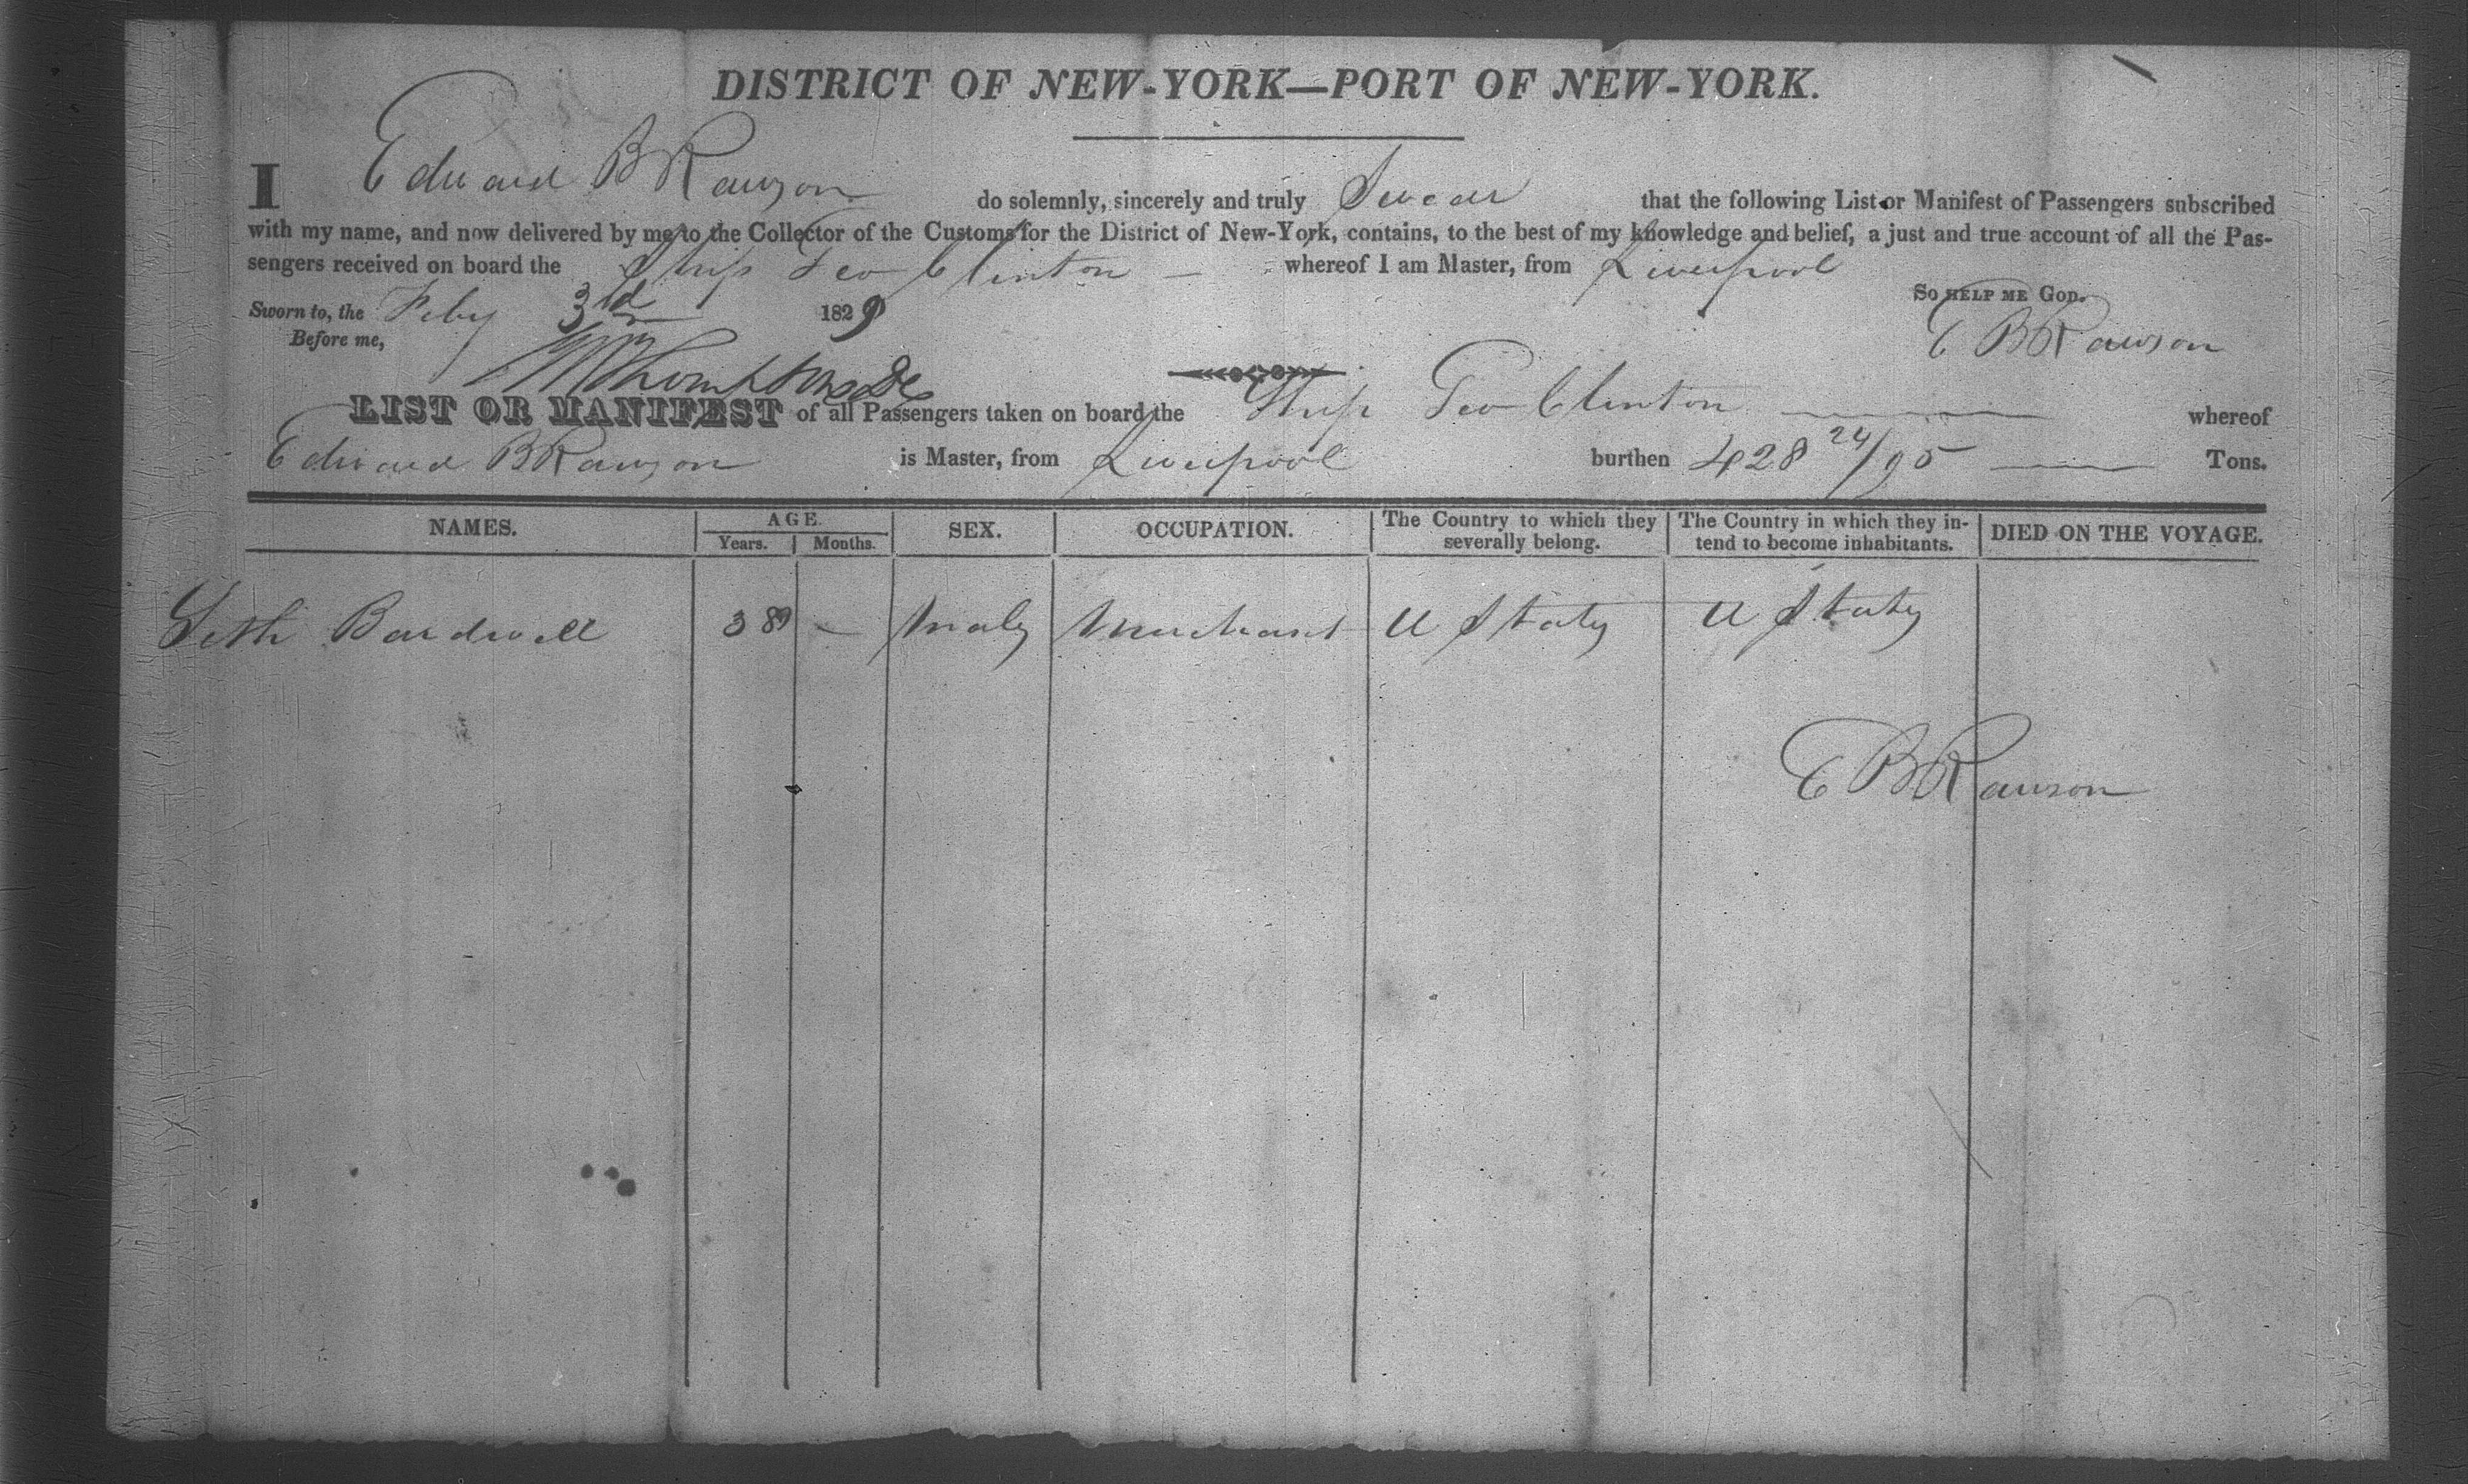 DISTRICT OF NEW-YORK—PORT OF NEW-YORK.
I Edward B Rawson do solemnly, sincerely and truly Swear that the following List or Manifest of Passengers subscribed
with my name, and now delivered by me to the Collector of the Customs for the District of New-York, contains, to the best of my knowledge and belief, a just and true account of all the Pas-
sengers received on board the Ship Geo Clinton — whereof I am Master, from Liverpool
So HELP ME GOD.
Sworn to, the Feby 3rd 1829
Before me,
E B Rawson
LIST OR MANIFEST of all Passengers taken on board the Ship Geo Clinton whereof
Edward B Rawson is Master, from Liverpool burthen 428 24/95 Tons.
NAMES. AGE. SEX. OCCUPATION. The Country to which they severally belong. The Country in which they in-tend to become inhabitants. DIED ON THE VOYAGE.
Years. Months.
Seth Bardwell — Male Merchant U States U States
E B Rawson